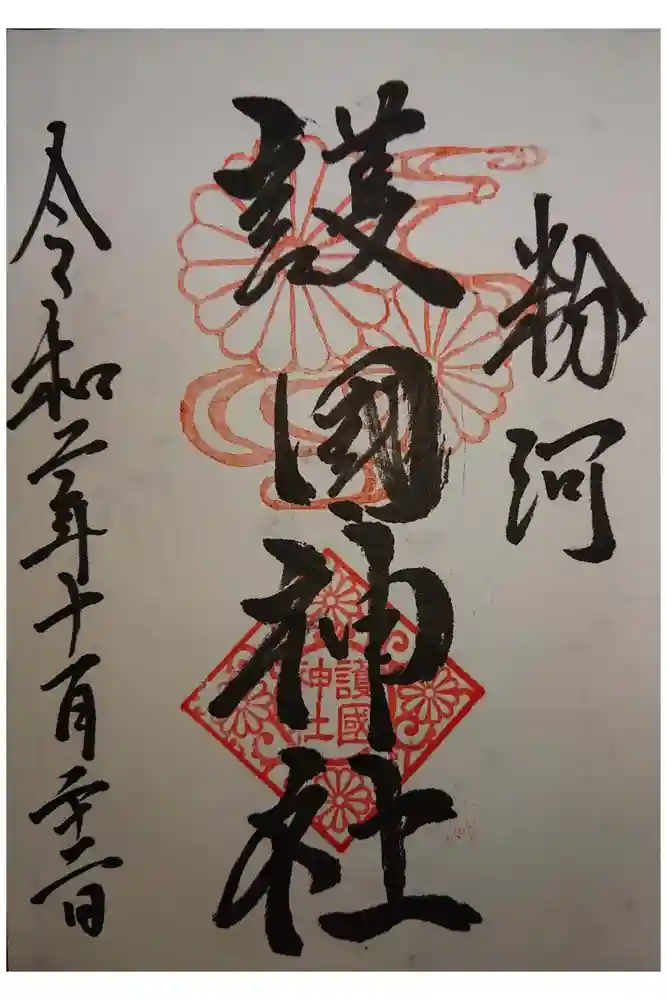 粉河
護國神社
護國
神社
令和二年十月二十二日